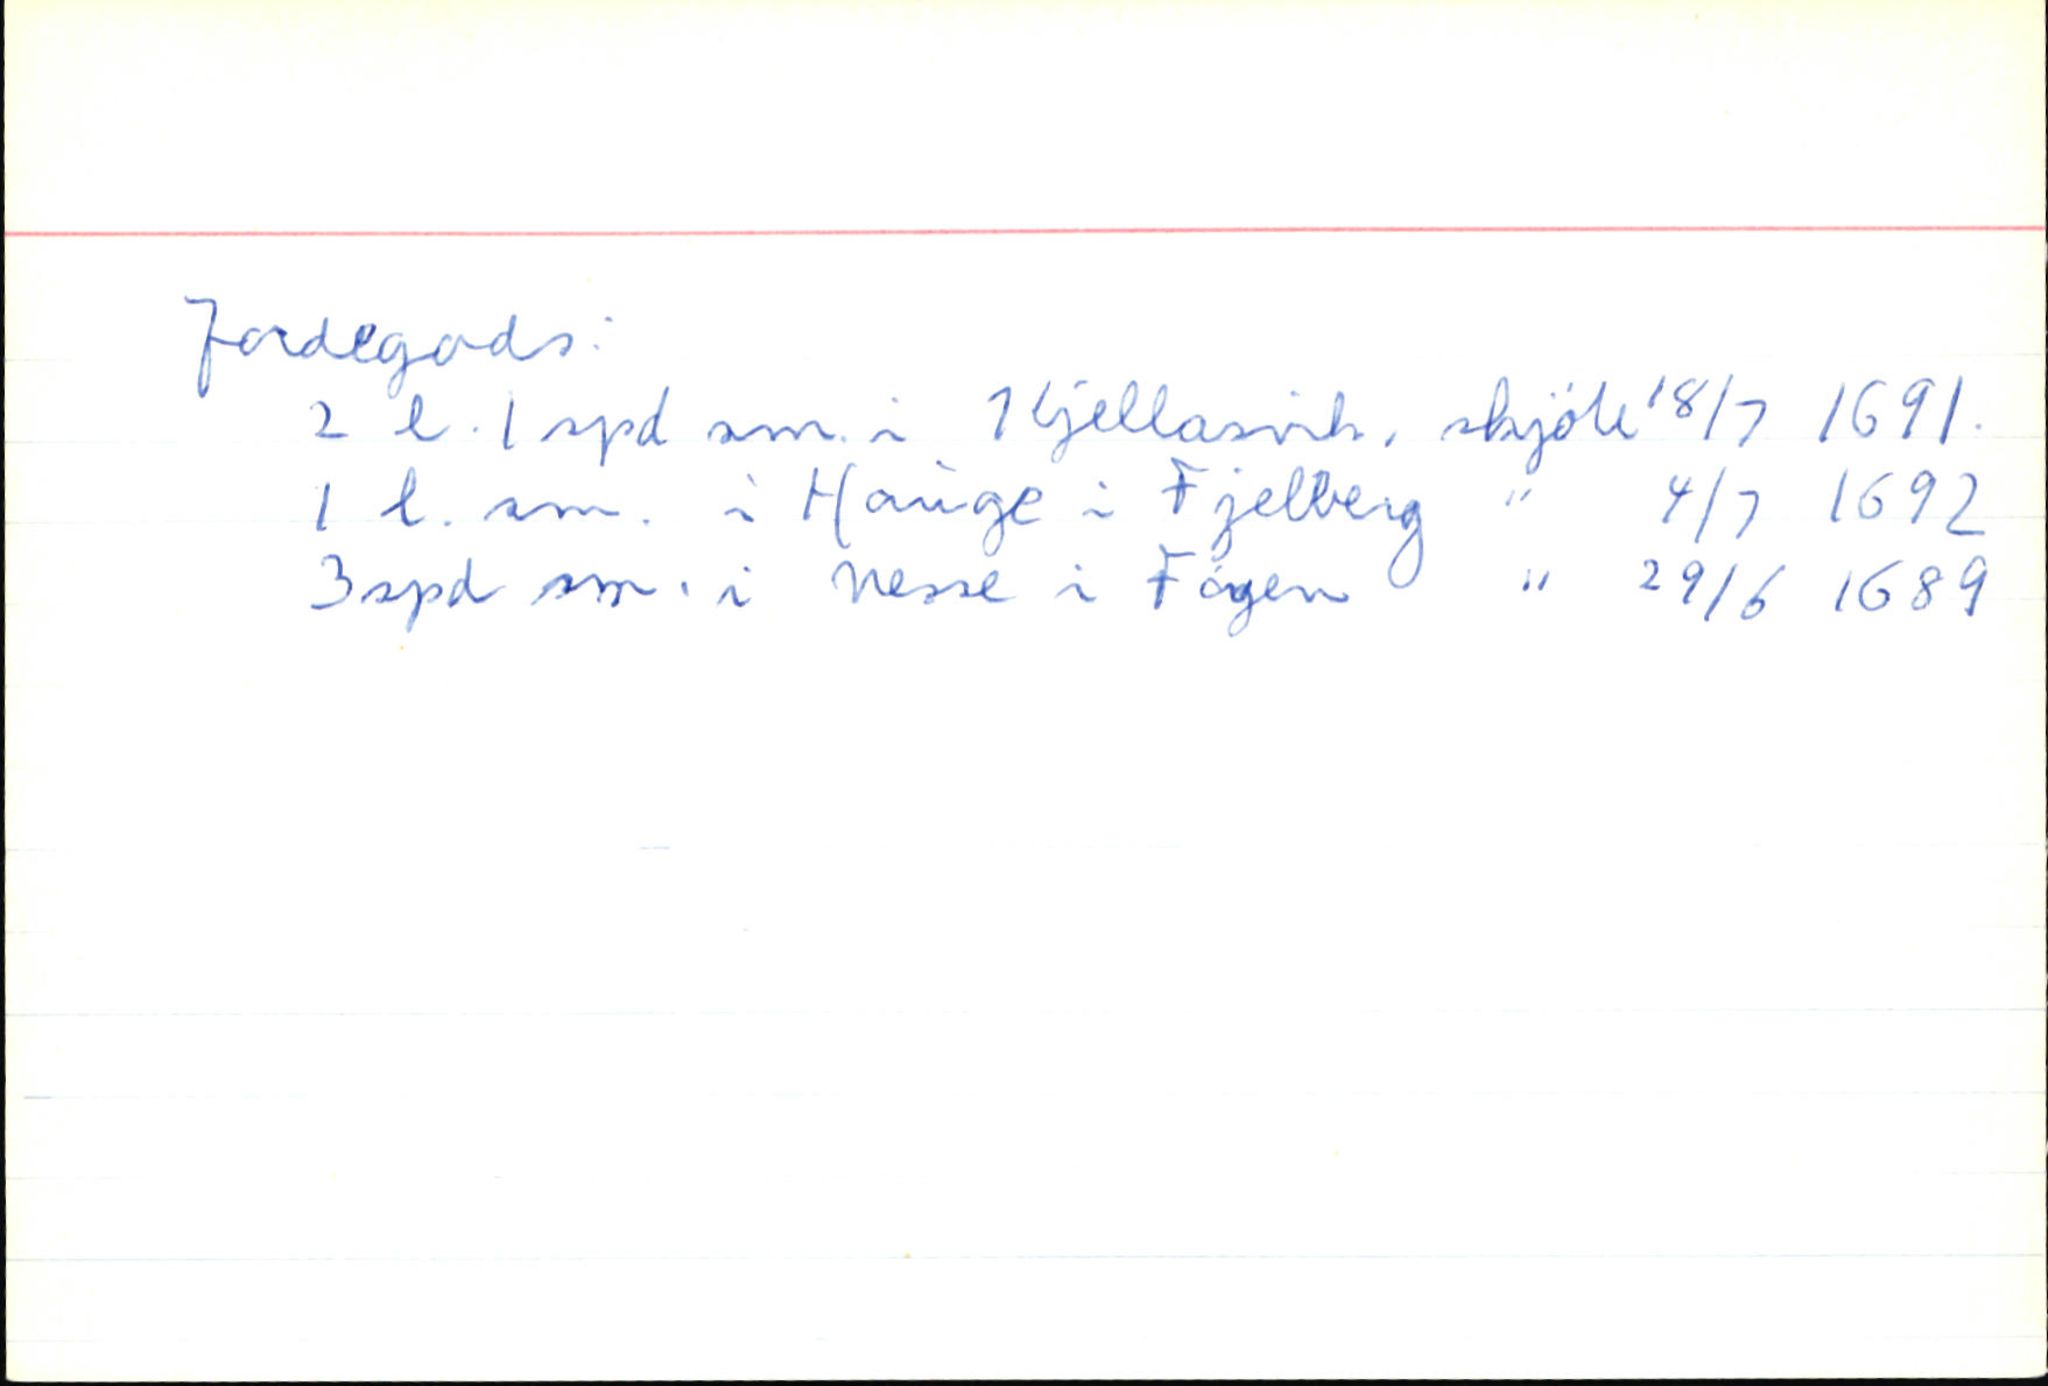 Jordegods:
2 l. 1 spd sm. i Kjellasvik, skjöte 18/7 1691.
1 l. sm. i Hauge i Fjelberg " 4/7 1692
3 spd sm. i Nesse i Føyen " 29/6 1689